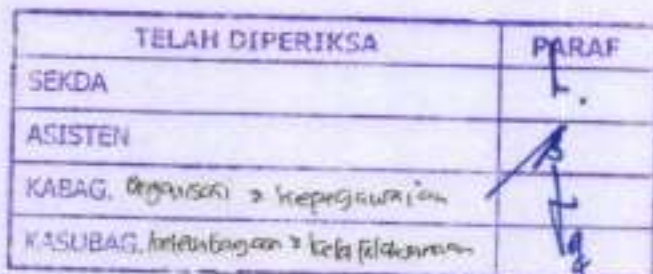 TELAH DIPERIKSA PARAF
SEKDA
ASISTEN
KABAG. Organisasi & kepegawaian
KASUBAG. kelembagaan &